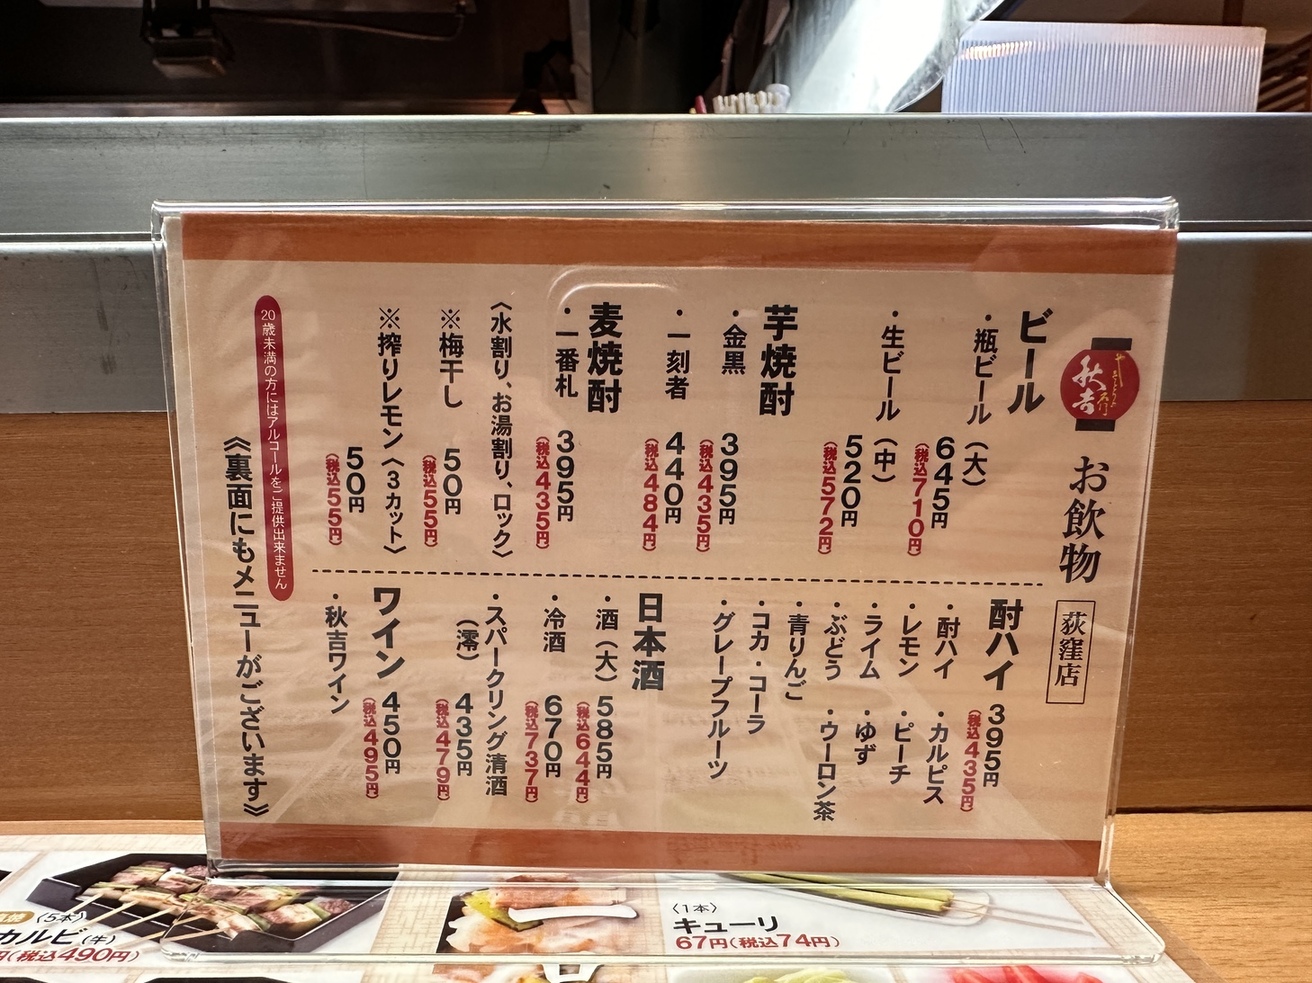 やきとりの名門
秋吉
お飲物
荻窪店
ビール
・瓶ビール(大)
645円
(税込710円)
・生ビール(中)
520円
(税込572円)
芋焼酎
・金黒
395円
(税込435円)
・一刻者
440円
(税込484円)
麦焼酎
・一番札
395円
(税込435円)
〈水割り、お湯割り、ロック〉
※梅干し
50円
(税込55円)
※搾りレモン〈3カット〉
50円
(税込55円)
酎ハイ 395円
(税込435円)
・酎ハイ ・カルピス
・レモン ・ピーチ
・ライム ・ゆず
・ぶどう ・ウーロン茶
・青りんご
・コカ・コーラ
・グレープフルーツ
日本酒
・酒(大) 585円
(税込644円)
・冷酒 670円
(税込737円)
・スパークリング清酒
(澪) 435円
(税込479円)
ワイン 450円
(税込495円)
・秋吉ワイン
20歳未満の方にはアルコールをご提供出来ません
《裏面にもメニューがございます》
〈5本〉
カルビ(牛)
円(税込490円)
〈1本〉
キューリ
67円(税込74円)